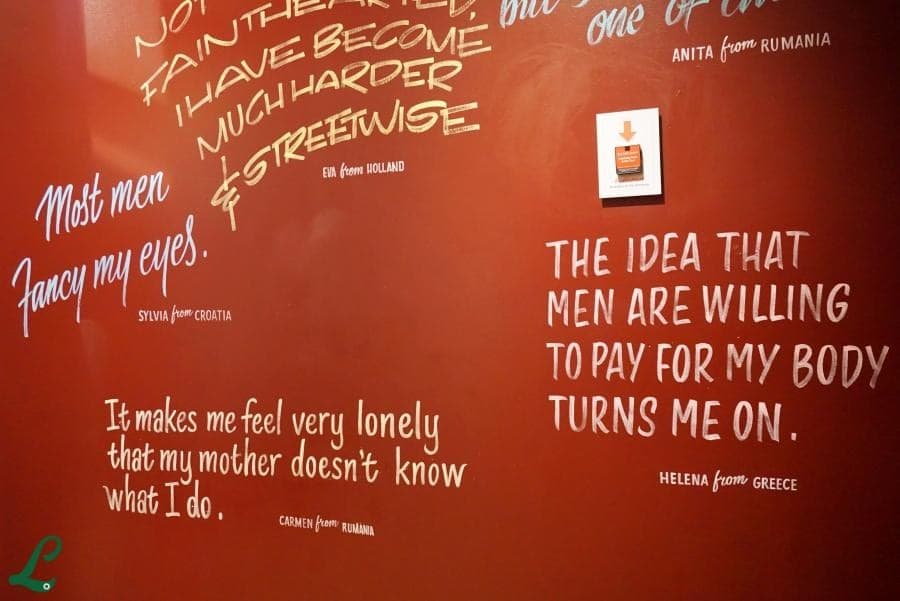 NOT
FAINTHEARTED.
I HAVE BECOME
MUCH HARDER
& STREETWISE
EVA from HOLLAND
but
one of
ANITA from RUMANIA
Most men
fancy my eyes.
SYLVIA from CROATIA
THE IDEA THAT
MEN ARE WILLING
TO PAY FOR MY BODY
TURNS ME ON.
HELENA from GREECE
It makes me feel very lonely
that my mother doesn't know
what I do.
CARMEN from RUMANIA
L